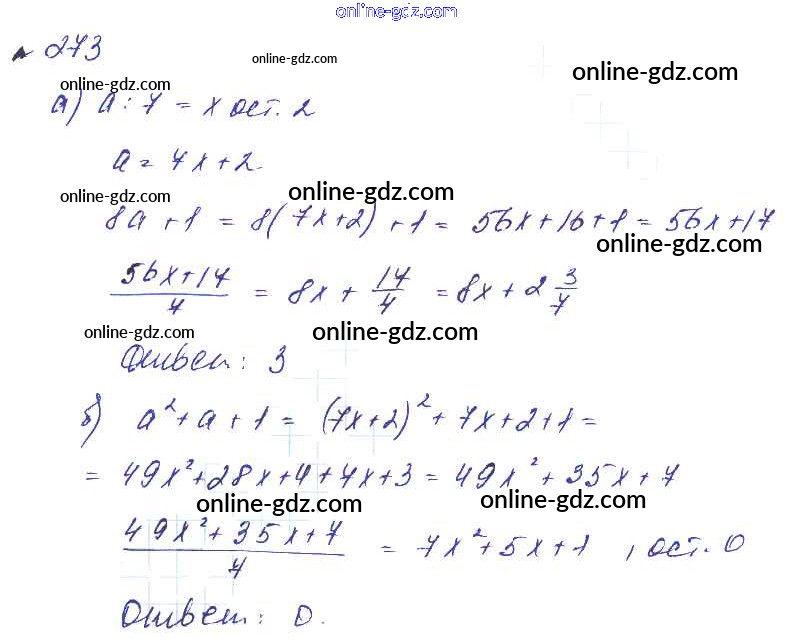 online-gdz.com
№ 273
online-gdz.com
online-gdz.com
online-gdz.com
а) a : 7 = x ост. 2
a = 7x + 2
online-gdz.com
online-gdz.com
8a + 1 = 8(7x+2) + 1 = 56x + 16 + 1 = 56x + 17
online-gdz.com
(56x + 17)/7 = 8x + 17/7 = 8x + 2 3/7
online-gdz.com
online-gdz.com
Ответ: 3
б) a² + a + 1 = (7x+2)² + 7x + 2 + 1 =
= 49x² + 28x + 4 + 7x + 3 = 49x² + 35x + 7
online-gdz.com
online-gdz.com
(49x² + 35x + 7)/7 = 7x² + 5x + 1 , ост. 0
Ответ: 0.